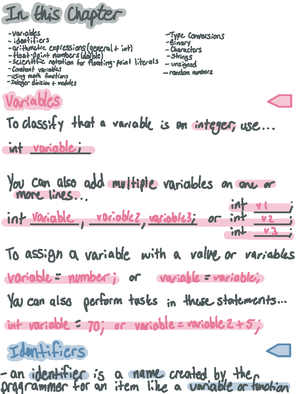 In this Chapter
- variables
- identifiers
- arithmetic expressions (general & int)
- Float-point numbers (double)
- Scientific notation for floating-point literals
- Constant variables
- using math functions
- Integer division & modulos
- Type Conversions
- Binary
- Characters
- Strings
- unsigned
- random numbers
Variables
To classify that a variable is an integer, use...
int variable;
You can also add multiple variables on one or
more lines...
int variable, variable2, variable3; or int v1;
int v2;
int v3;
To assign a variable with a value or variables
variable = number; or variable = variable;
You can also perform tasks in these statements...
int variable = 70; or variable = variable2 + 5;
Identifiers
- an identifier is a name created by the
programmer for an item like a variable or function